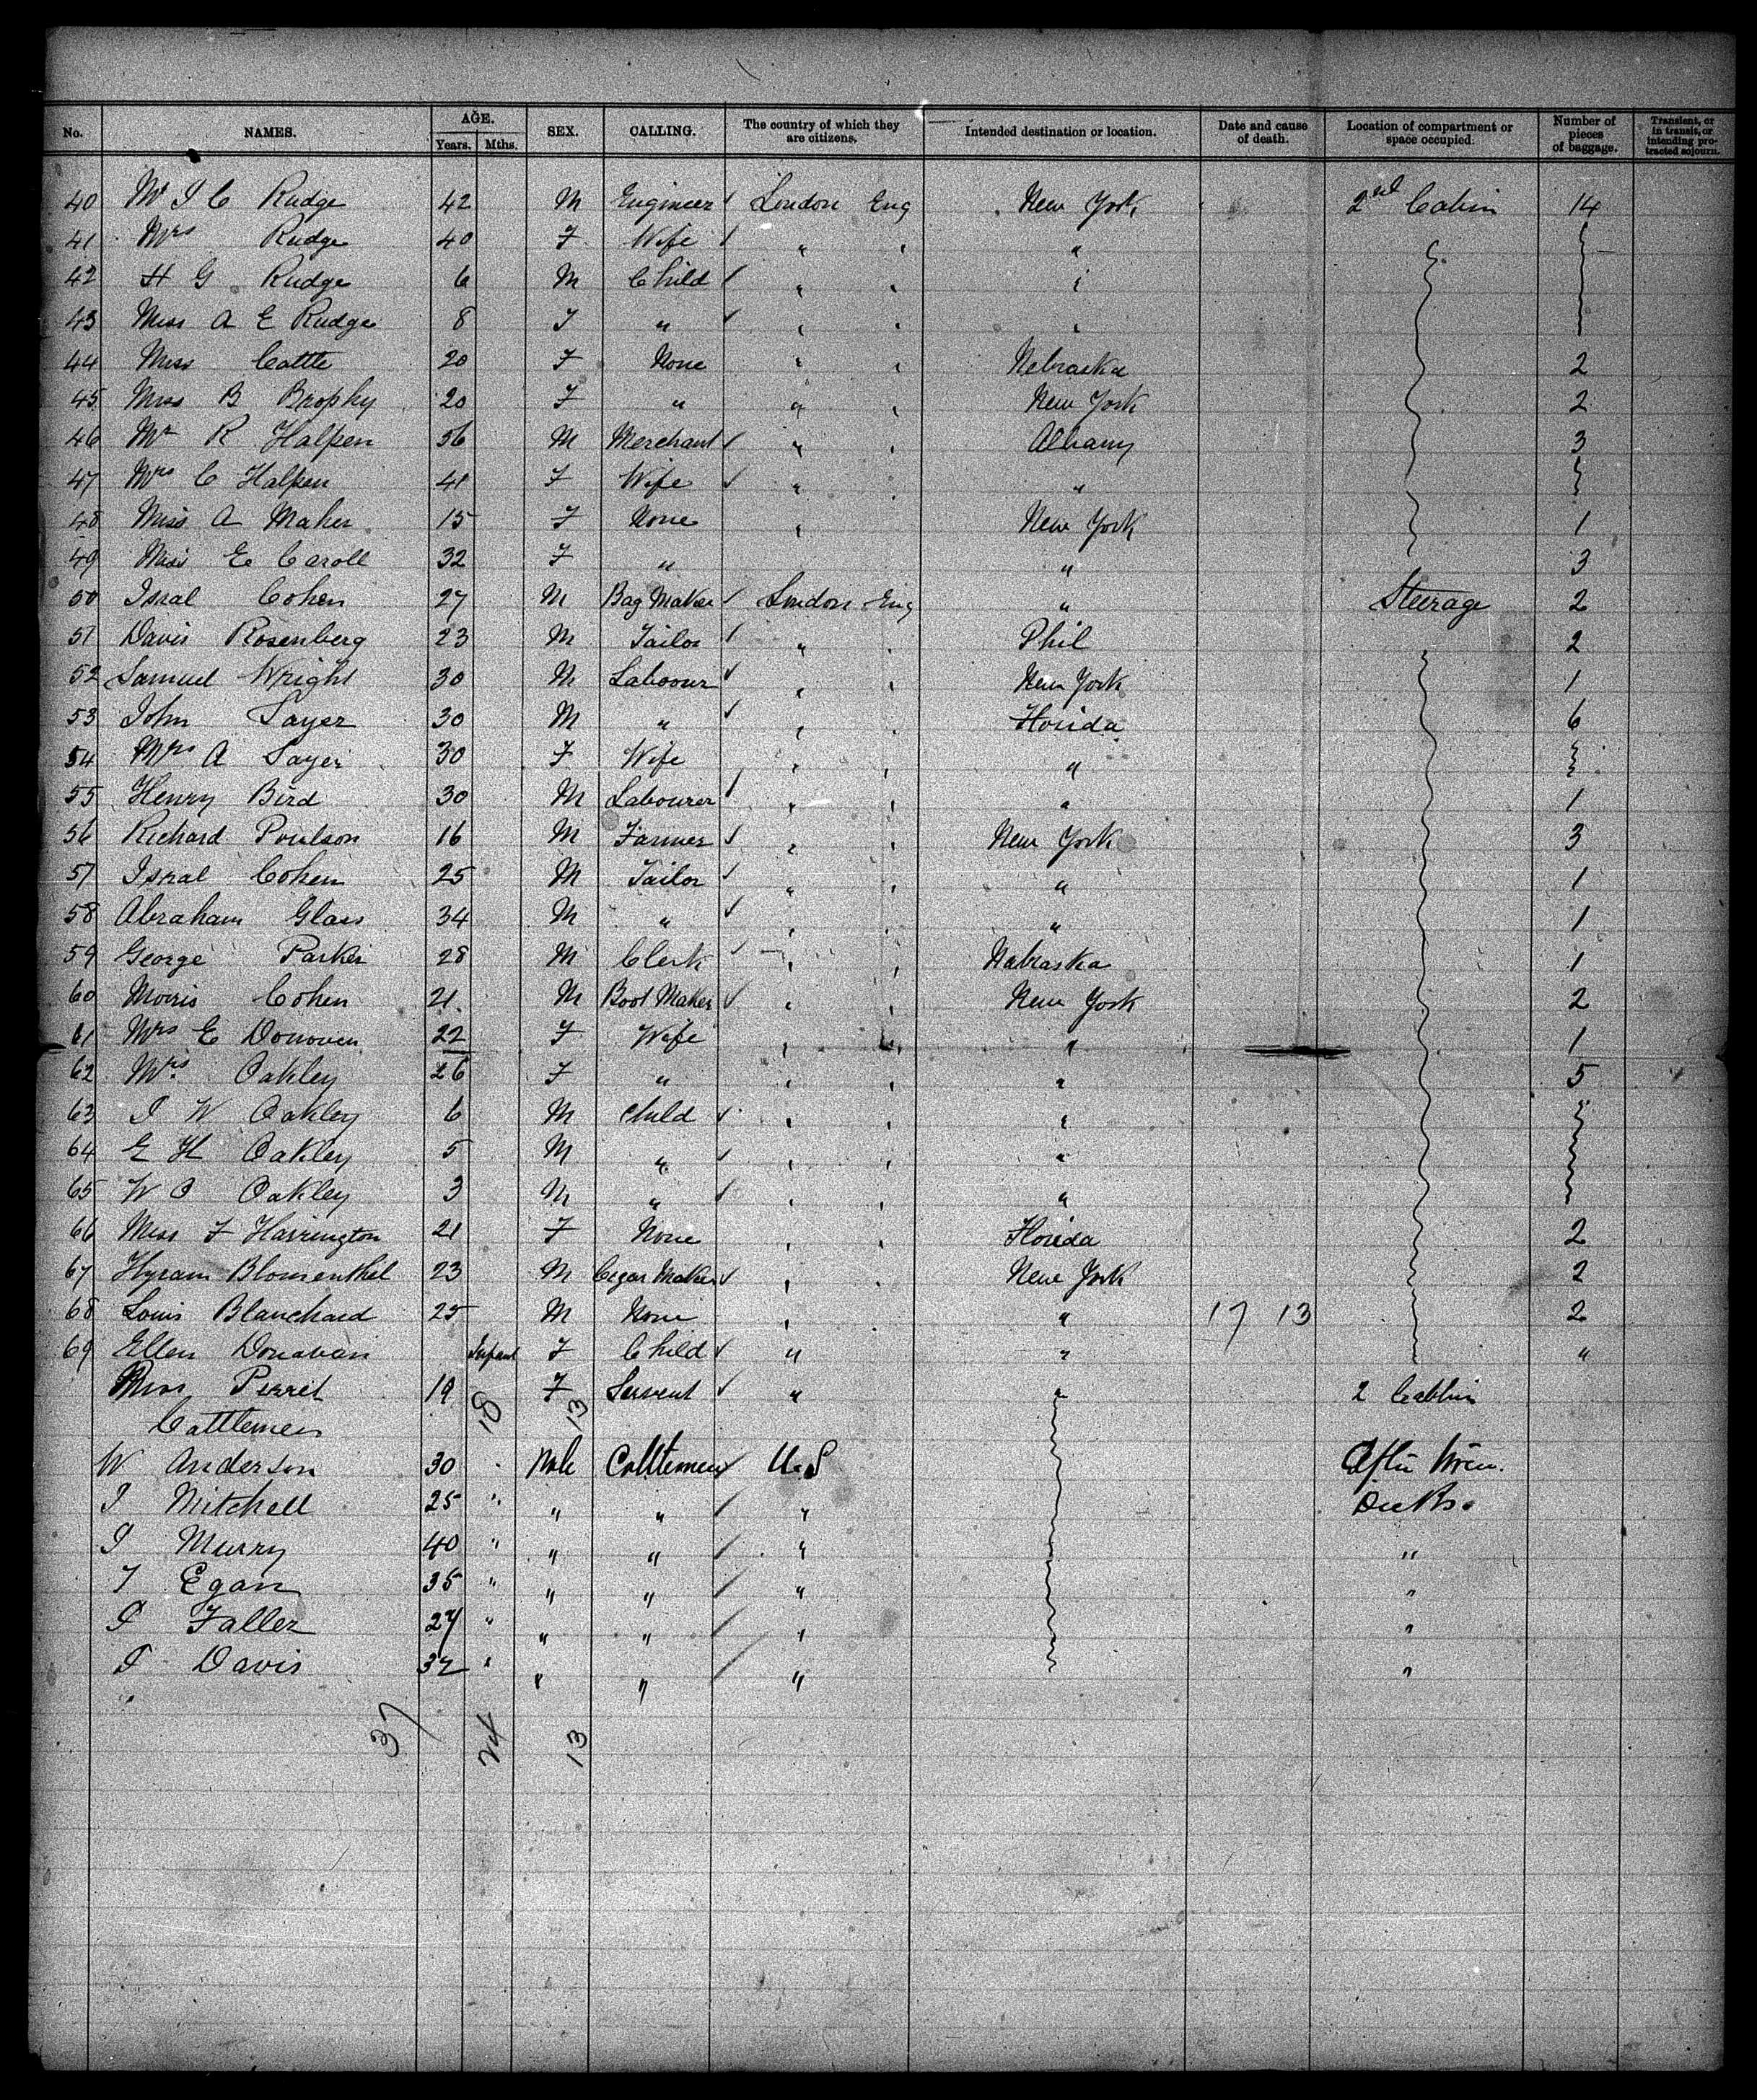 No. NAMES. AGE. Years. Mths. SEX. CALLING. The country of which they are citizens. Intended destination or location. Date and cause of death. Location of compartment or space occupied. Number of pieces of baggage. Transient, or in transit, or intending protracted sojourn.
40 Mr I C Rudge 42 M Engineer London Eng New York 2nd Cabin 14
41 Mrs Rudge 40 F Wife " " "
42 H G Rudge 6 M Child " " "
43 Miss A E Rudge 8 F " " " "
44 Miss Cattle 20 F None " " Nebraska 2
45 Miss B Brophy 20 F " " " New York 2
46 Mr R Halpen 56 M Merchant " " Albany 3
47 Mrs C Halpen 41 F Wife " " "
48 Miss A Maher 15 F None " New York 1
49 Miss E Caroll 32 F " " 3
50 Isral Cohen 27 M Bag Maker London Eng " Steerage 2
51 Davis Rosenberg 23 M Tailor " " Phil 2
52 Samuel Wright 30 M Laboour " " New York 1
53 John Sayer 30 M " " " Florida 6
54 Mrs A Sayer 30 F Wife " " "
55 Henry Bird 30 M Labourer " " " 1
56 Richard Poulson 16 M Farmer " " New York 3
57 Isral Cohen 25 M Tailor " " " 1
58 Abraham Glass 34 M " " " " 1
59 George Parker 28 M Clerk " " Nabraska 1
60 Moris Cohen 21 M Boot Maker " " New York 2
61 Mrs E Donoven 22 F Wife " " " 1
62 Mrs Oakley 26 F " " " " 5
63 I W Oakley 6 M Child " " "
64 E H Oakley 5 M " " " "
65 W O Oakley 3 M " " " "
66 Miss F Harrington 21 F None " " Florida 2
67 Hyram Blomenthel 23 M Cegar Maker " " New York 2
68 Louis Blanchard 25 M None " " 17 13 2
69 Ellen Donavan Infant F Child " " "
Miss Perret 19 F Servent " " 2 Cabbin
18 13
Cattlemen
W Anderson 30 " Male Cattlemen U.S After
I Mitchell 25 " " " " Decks.
I Murry 40 " " " " "
T Egan 35 " " " " "
P Faller 27 " " " " "
P Davis 32 " " " " "
37 24 13